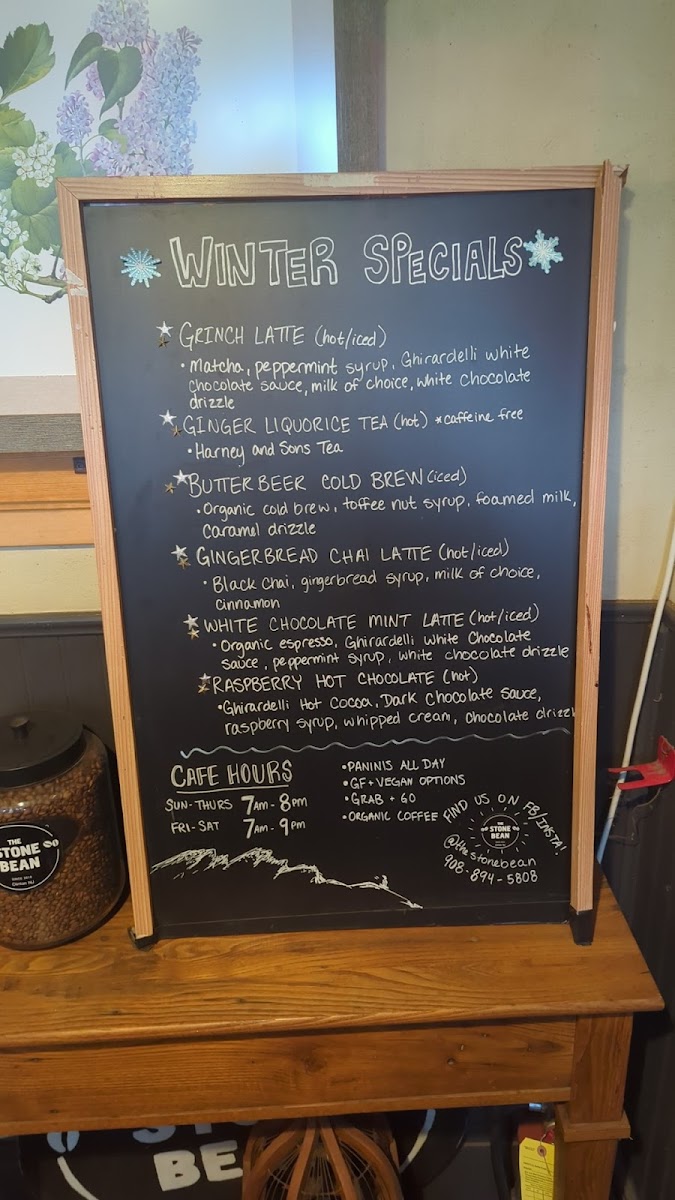 WINTER SPECIALS
GRINCH LATTE (hot/iced)
• Matcha, peppermint syrup, Ghirardelli white
chocolate sauce, milk of choice, white chocolate
drizzle
GINGER LIQUORICE TEA (hot) *caffeine free
• Harney and Sons Tea
BUTTERBEER COLD BREW (iced)
• Organic cold brew, toffee nut syrup, foamed milk,
caramel drizzle
GINGERBREAD CHAI LATTE (hot/iced)
• Black chai, gingerbread syrup, milk of choice,
cinnamon
WHITE CHOCOLATE MINT LATTE (hot/iced)
• Organic espresso, Ghirardelli White Chocolate
sauce, peppermint syrup, white chocolate drizzle
RASPBERRY HOT CHOCOLATE (hot)
• Ghirardelli Hot Cocoa, Dark chocolate sauce,
raspberry syrup, whipped cream, chocolate drizzl
CAFE HOURS
SUN-THURS 7AM-8PM
FRI-SAT 7AM-9PM
• PANINIS ALL DAY
• GF + VEGAN OPTIONS
• GRAB + GO
• ORGANIC COFFEE
FIND US ON FB/INSTA!
THE
STONE
BEAN
@thestonebean
908-894-5808
THE
STONE
BEAN
Clinton NJ
BE